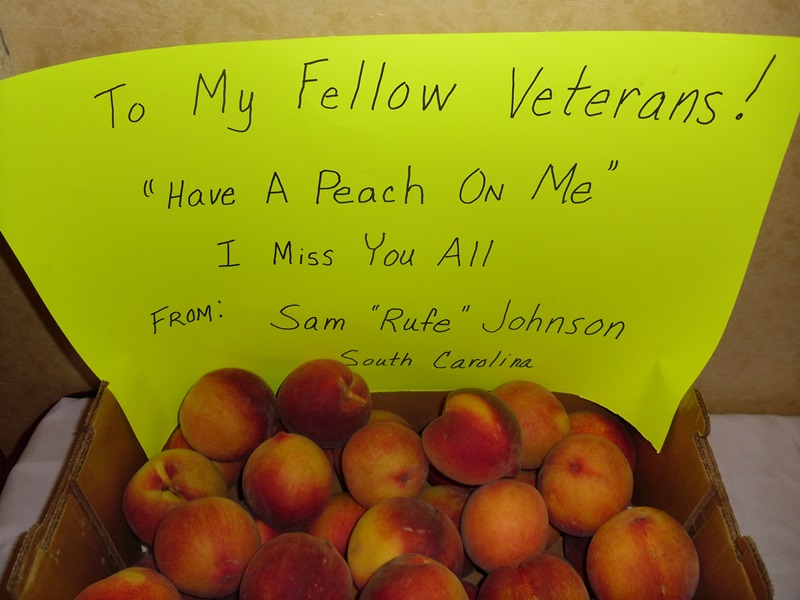 To My Fellow Veterans!
"Have A Peach On Me"
I Miss You All
From: Sam "Rufe" Johnson
South Carolina